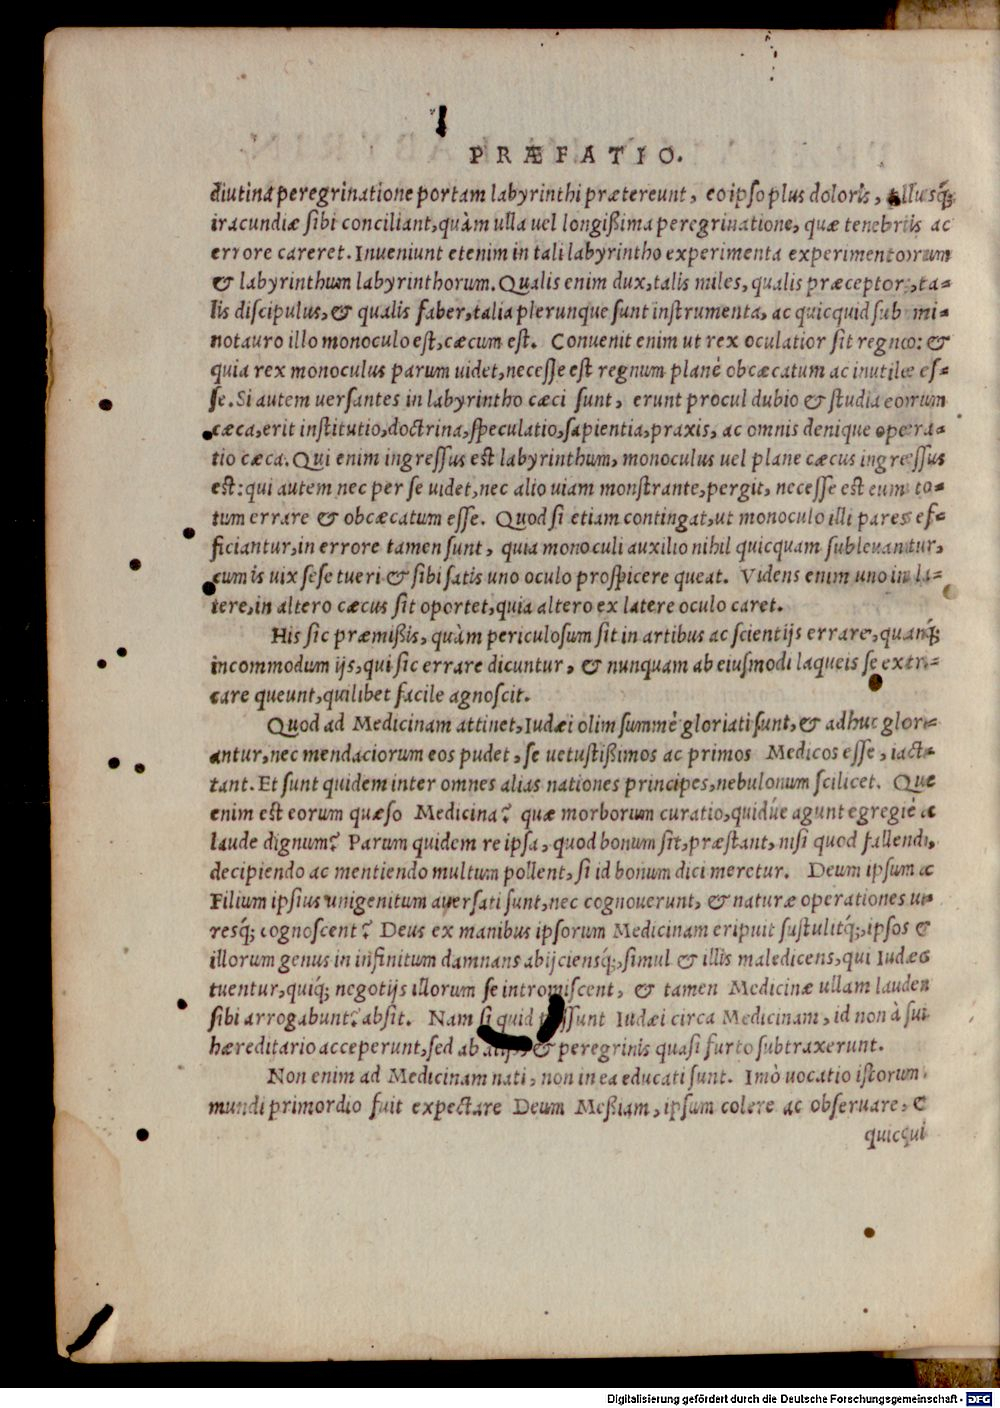 PRÆFATIO.
diutina peregrinatione portam labyrinthi prætereunt, eo ipso plus doloris,
iracundiæ sibi conciliant, quàm ulla uel longißima peregrinatione, quæ tenebris ac
errore careret. Inueniunt etenim in tali labyrintho experimenta experimentorum
& labyrinthum labyrinthorum. Qualis enim dux, talis miles, qualis præceptor, ta-
lis discipulus, & qualis faber, talia plerunque sunt instrumenta, ac quicquid sub mi-
notauro illo monoculo est, cæcum est. Conuenit enim ut rex oculatior sit regno: &
quia rex monoculus parum uidet, necesse est regnum planè obcæcatum ac inutile es-
se. Si autem uersantes in labyrintho cæci sunt, erunt procul dubio & studia eorum
cæca, erit institutio, doctrina, speculatio, sapientia, praxis, ac omnis denique opera-
tio cæca. Qui enim ingressus est labyrinthum, monoculus uel plane cæcus ingressus
est: qui autem nec per se uidet, nec alio uiam monstrante, pergit, necesse est eum to-
tum errare & obcæcatum esse. Quod si etiam contingat, ut monoculo illi pares ef-
ficiantur, in errore tamen sunt, quia monoculi auxilio nihil quicquam subleuantur,
cum is uix sese tueri & sibi satis uno oculo prospicere queat. Videns enim uno in la-
tere, in altero cæcus sit oportet, quia altero ex latere oculo caret.
His sic præmißis, quàm periculosum sit in artibus ac scientijs errare, quanq́;
incommodum ijs, qui sic errare dicuntur, & nunquam ab eiusmodi laqueis se extri-
care queunt, quilibet facile agnoscit.
Quod ad Medicinam attinet, Iudæi olim summè gloriati sunt, & adhuc glori-
antur, nec mendaciorum eos pudet, se uetustißimos ac primos Medicos esse, iact-
tant. Et sunt quidem inter omnes alias nationes principes, nebulonum scilicet. Quæ
enim est eorum quæso Medicina? quæ morborum curatio, quidúe agunt egregiè ac
laude dignum? Parum quidem re ipsa, quod bonum sit, præstant, nisi quod fallendi,
decipiendo ac mentiendo multum pollent, si id bonum dici meretur. Deum ipsum ac
Filium ipsius unigenitum auersati sunt, nec cognouerunt, & naturæ operationes ui-
resq́; cognoscent? Deus ex manibus ipsorum Medicinam eripuit sustulitq́;, ipsos &
illorum genus in infinitum damnans abijciensq́;, simul & illis maledicens, qui Iudæos
tuentur, quiq́; negotijs illorum se intromiscent, & tamen Medicinæ ullam laudem
sibi arrogabunt? absit. Nam si quid possunt Iudæi circa Medicinam, id non à sui
hæreditario acceperunt, sed ab alijs, & peregrinis quasi furto subtraxerunt.
Non enim ad Medicinam nati, non in ea educati sunt. Imò uocatio istorum
mundi primordio fuit expectare Deum Meßiam, ipsum colere ac obseruare, &
quicqui
Digitalisierung gefördert durch die Deutsche Forschungsgemeinschaft - DFG